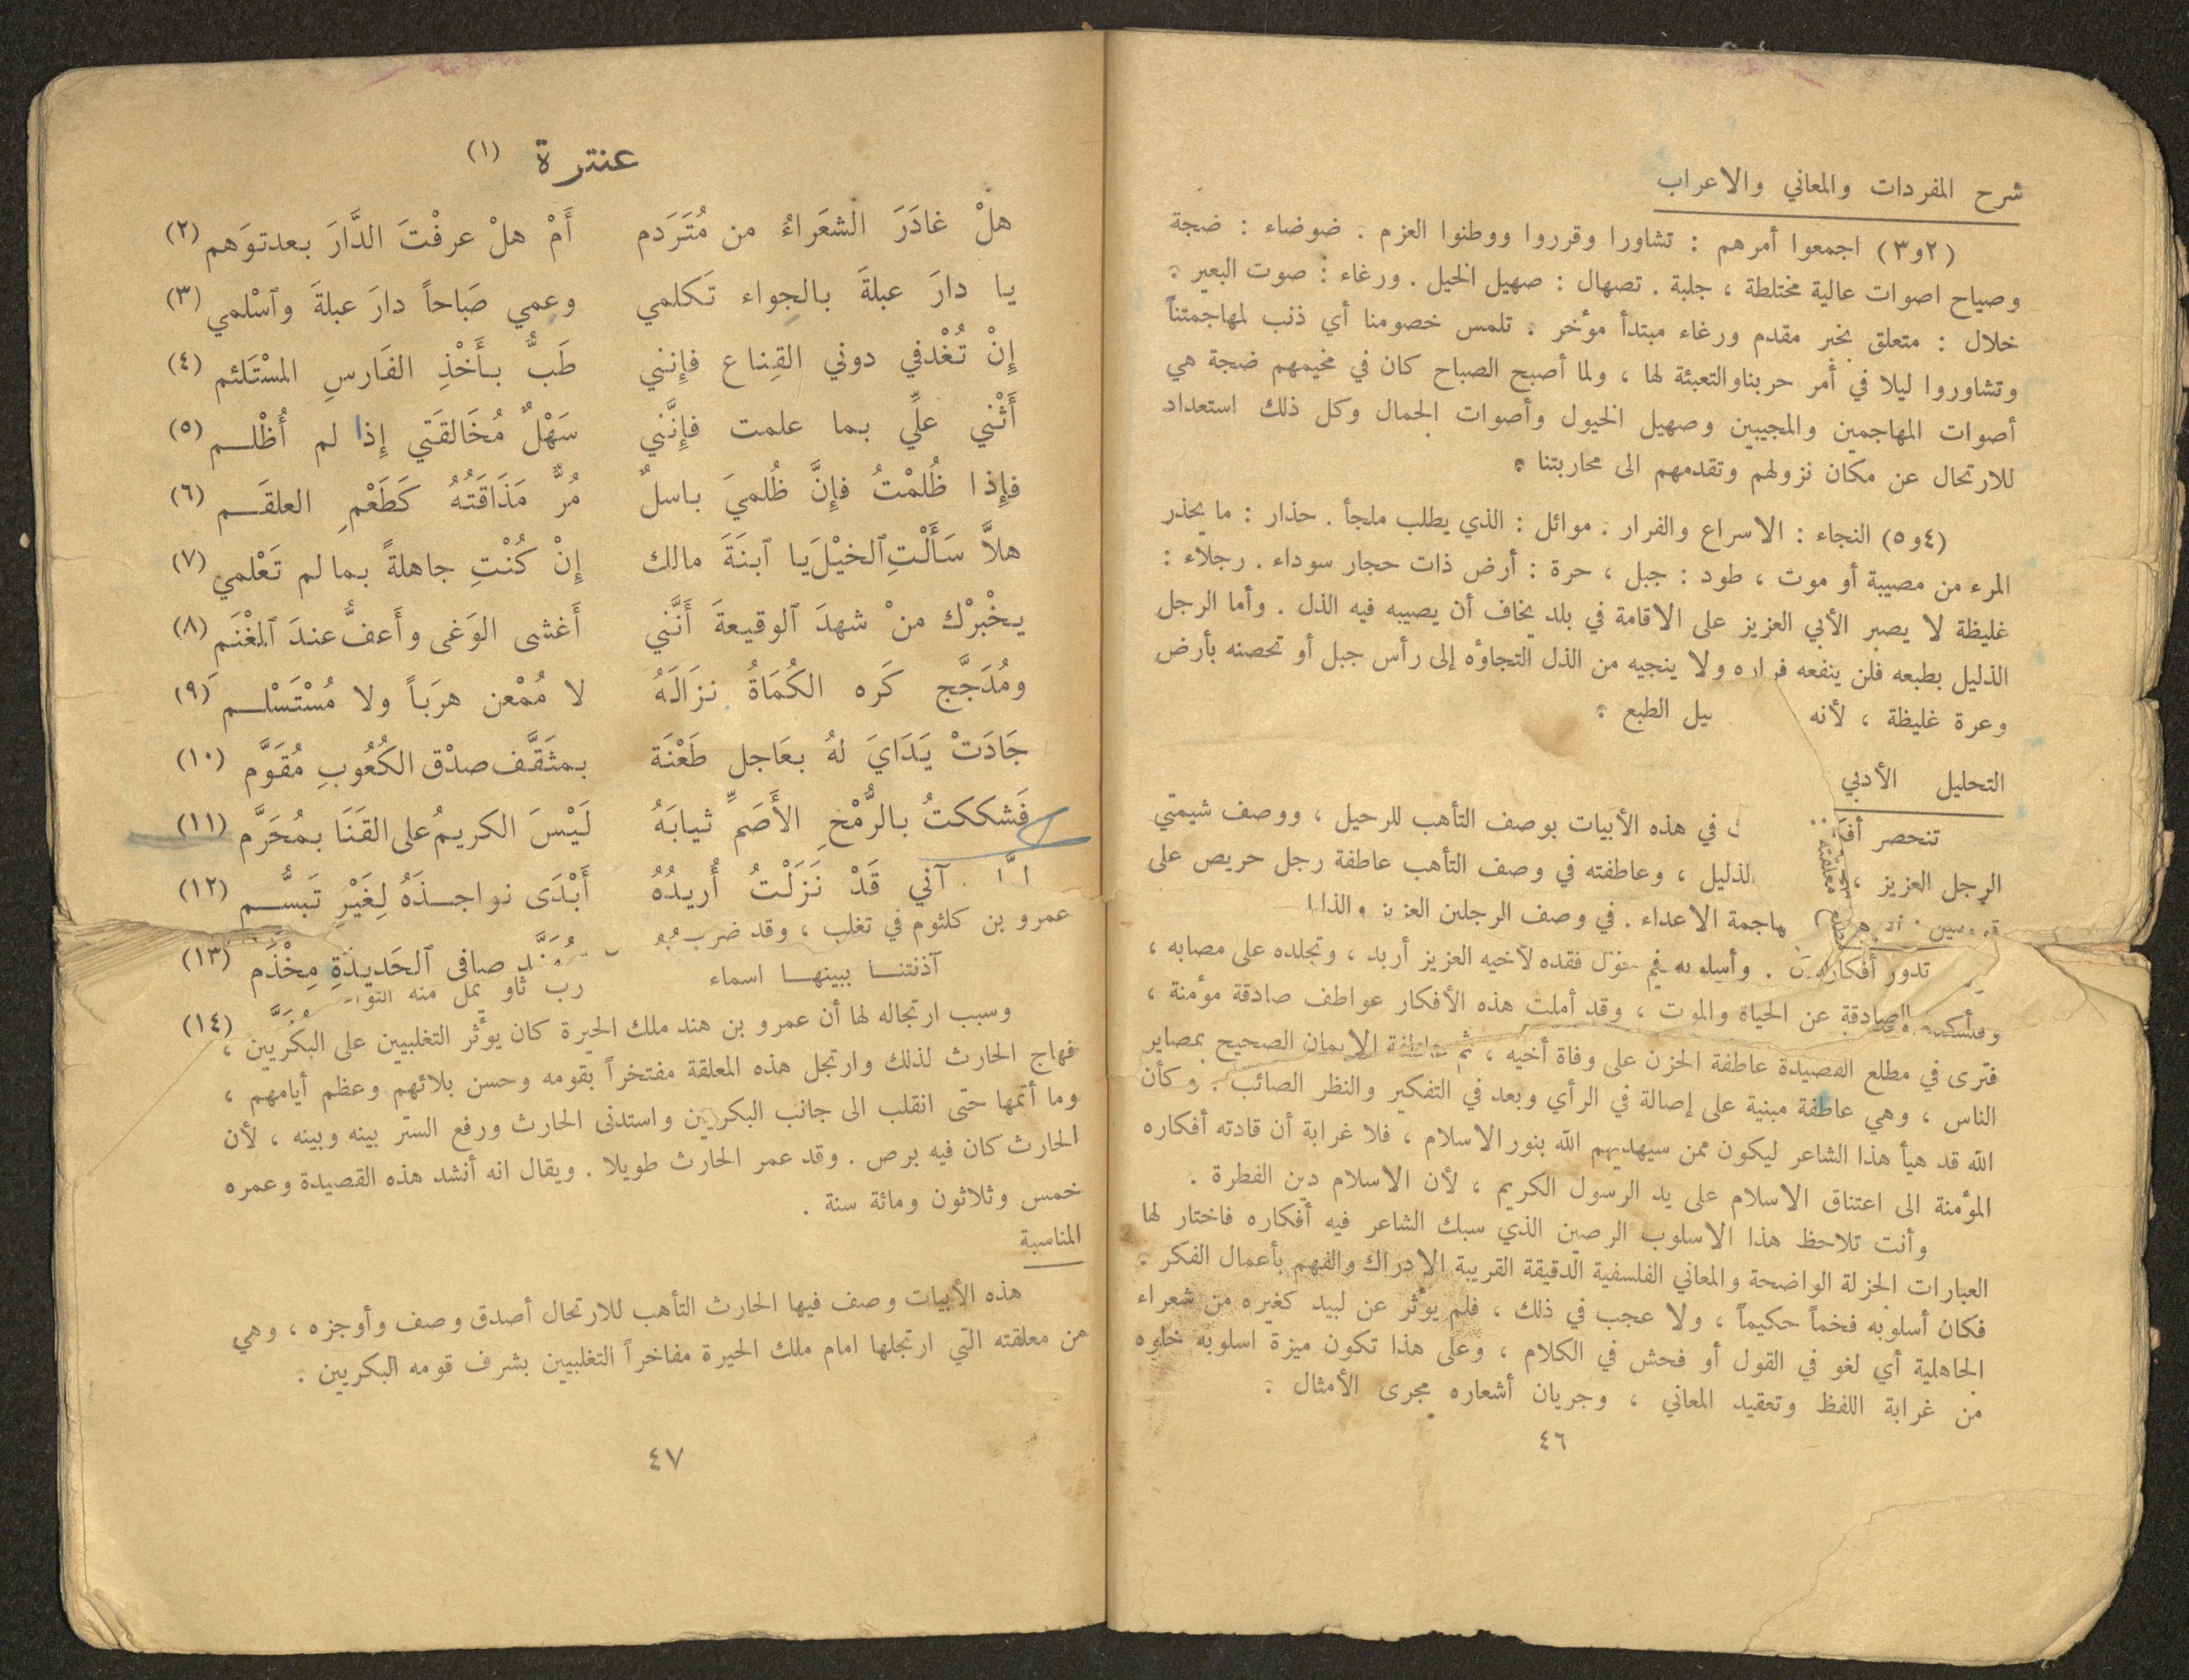 شرح المفردات والمعاني والاعراب
(٢و٣) اجمعوا أمرهم : تشاورا وقرروا ووطنوا العزم . ضوضاء : ضجة
وصياح اصوات عالية مختلطة ، جلبة . تصهال : صهيل الخيل . ورغاء : صوت البعير .
خلال : متعلق بخبر مقدم ورغاء مبتدأ مؤخر . تلمس خصومنا أي ذنب لمهاجمتنأ
وتشاوروا ليلا في أمر حربناوالتعبئة لها ، ولما أصبح الصباح كان في مخيمهم ضجة هي
أصوات المهاجمين والمجيبين وصهيل الخيول وأصوات الجمال وكل ذلك استعداد
للارتحال عن مكان نزولهم وتقدمهم الى محاربتنا .
(٤و٥) النجاء : الاسراع والفرار . موائل : الذي يطلب ملجأ . حذار : ما يحذر
المرء من مصيبة أو موت ، طود : جبل ، حرة : أرض ذات حجار سوداء . رجلاء :
غليظة لا يصبر الأبي العزيز على الاقامة في بلد يخاف أن يصيبه فيه الذل . وأما الرجل
الذليل بطبعه فلن ينفعه فراره ولا ينجيه من الذل التجاؤه إلى رأس جبل أو تحصنه بأرض
وعرة غليظة ، لأنه الطبع .
التحليل الأدبي
تنحصر في هذه الأبيات بوصف التأهب للرحيل ، ووصف شيمتي
الرجل العزيز ، الذليل ، وعاطفته في وصف التأهب عاطفة رجل حريص على
الاعداء . في وصف الرجلين العزيز والذليل
تدور أفكاره فقده لأخيه العزيز أربد ، وتجلده على مصابه ،
الصادقة عن الحياة والموت ، وقد أملت هذه الأفكار عواطف صادقة مؤمنة ،
فترى في مطلع القصيدة عاطفة الحزن على وفاة أخيه ، ثم عاطفة الايمان الصحيح بمصاير
الناس ، وهي عاطفة مبنية على إصالة في الرأي وبعد في التفكير والنظر الصائب . وكأن
الله قد هيأ هذا الشاعر ليكون ممن سيهديهم الله بنور الاسلام ، فلا غرابة أن قادته أفكاره
المؤمنة الى اعتناق الاسلام على يد الرسول الكريم ، لأن الاسلام دين الفطرة .
وأنت تلاحظ هذا الاسلوب الرصين الذي سبك الشاعر فيه أفكاره فاختار لها
العبارات الجزلة الواضحة والمعاني الفلسفية الدقيقة القريبة الادراك والفهم بأعمال الفكر .
فكان أسلوبه فخماً حكيماً ، ولا عجب في ذلك ، فلم يؤثر عن لبيد كغيره من شعراء
الجاهلية أي لغو في القول أو فحش في الكلام ، وعلى هذا تكون ميزة اسلوبه خلوه
من غرابة اللفظ وتعقيد المعاني ، وجريان أشعاره مجرى الأمثال .
٤٦
عنترة (١)
هلْ غادَرَ الشعَراءُ من مُتَرَدم أَمْ هلْ عرفْتَ الدَّارَ بعدتوَهم (٢)
يا دارَ عبلةَ بالجواء تَكلمي وعمي صَباحاً دارَ عبلةَ وٱسْلمي (٣)
إِنْ تُغْدفي دوني القِناع فإِنني طَبٌّ بأَخْذِ الفَارسِ المسْتَلئم (٤)
أَثْني عليِّ بما علمت فإِنَّني سَهْلٌ مُخَالقَتي إِذا لم أُظْلم (٥)
فإِذا ظُلمْتُ فإِنَّ ظُلميَ باسلٌ مُرٌّ مَذَاقَتُهُ كَطَعْمِ العلقَم (٦)
هلاَّ سَأَلْتِ ٱلخيْلَ يا ٱبنَةَ مالك إِنْ كُنْتِ جاهلةً بما لم تَعْلمي (٧)
يخْبرْك منْ شهدَ ٱلوقيعةَ أَنَّني أَغشى الوَغى وأَعفُّ عندَ ٱلمغْنَم (٨)
ومُدَجَّج كَره الكُمَاةُ نزَالَهُ لا مُمْعن هرَباً ولا مُسْتَسْلم (٩)
جَادَتْ يَدَايَ لهُ بعَاجل طَعْنَة بمثَقَّف صدْق الكُعُوبِ مُقوَّم (١٠)
فَشككتُ بالرُّمْحِ الأَصَمِّ ثيابَهُ لَيْسَ الكريمُ على القَنَا بمُحَرَّم (١١)
آني قَدْ نَزَلْتُ أُريدُهُ أَبْدَى نواجذَهُ لِغَيْرِ تَبسُّم (١٢)
عمرو بن كلثوم في تغلب ، وقد ضرب
صافي ٱلحَديدَةِ مِخْذَم (١٣)
آذنتنا ببينها اسماء رب ثاو يمل منه
(١٤)
وسبب ارتجاله لها أن عمرو بن هند ملك الحيرة كان يؤثر التغلبيين على البكريين ،
فهاج الحارث لذلك وارتجل هذه المعلقة مفتخراً بقومه وحسن بلائهم وعظم أيامهم ،
وما أتمها حتى انقلب الى جانب البكريين واستدنى الحارث ورفع الستر بينه وبينه ، لأن
الحارث كان فيه برص . وقد عمر الحارث طويلا . ويقال انه أنشد هذه القصيدة وعمره
خمس وثلاثون ومائة سنة .
المناسبة
هذه الأبيات وصف فيها الحارث التأهب للارتحال أصدق وصف وأوجزه ، وهي
من معلقته التي ارتجلها امام ملك الحيرة مفاخراً التغلبيين بشرف قومه البكريين .
٤٧